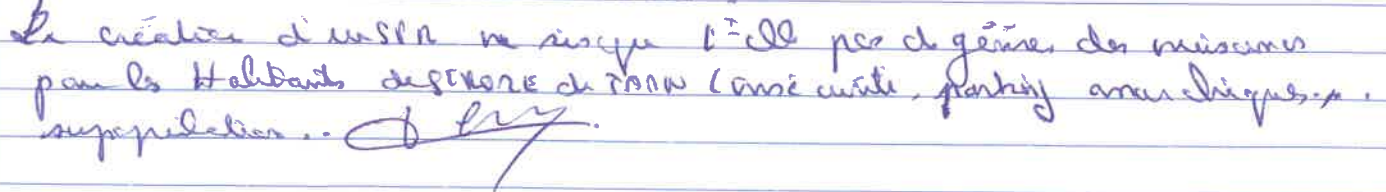 La création d'un SPR ne risque t-elle pas de générer des nuisances
pour les Habitants de ST MORE de (insécurité, parking anarchiques...
surpopulation...